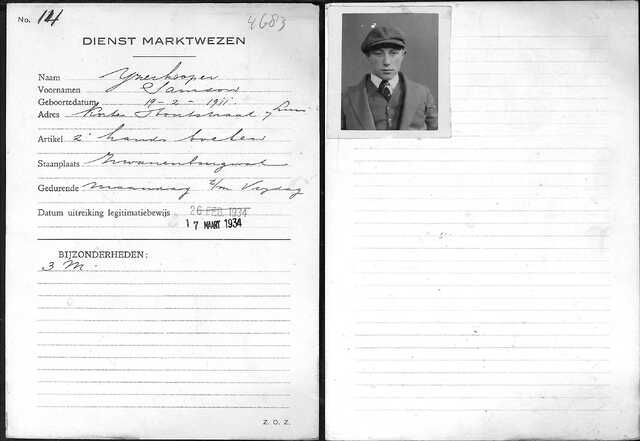 No. 14
4683
DIENST MARKTWEZEN
Naam IJzerkooper
Voornamen Samson
Geboortedatum 19-2-1911
Adres Korte Houtstraat 7
Artikel 2e hands boeken
Staanplaats Zwanenburgwal
Gedurende Maandag t/m Vrijdag
Datum uitreiking legitimatiebewijs 26 FEB. 1934
17 MAART 1934
BIJZONDERHEDEN:
3 M.
Z. O. Z.